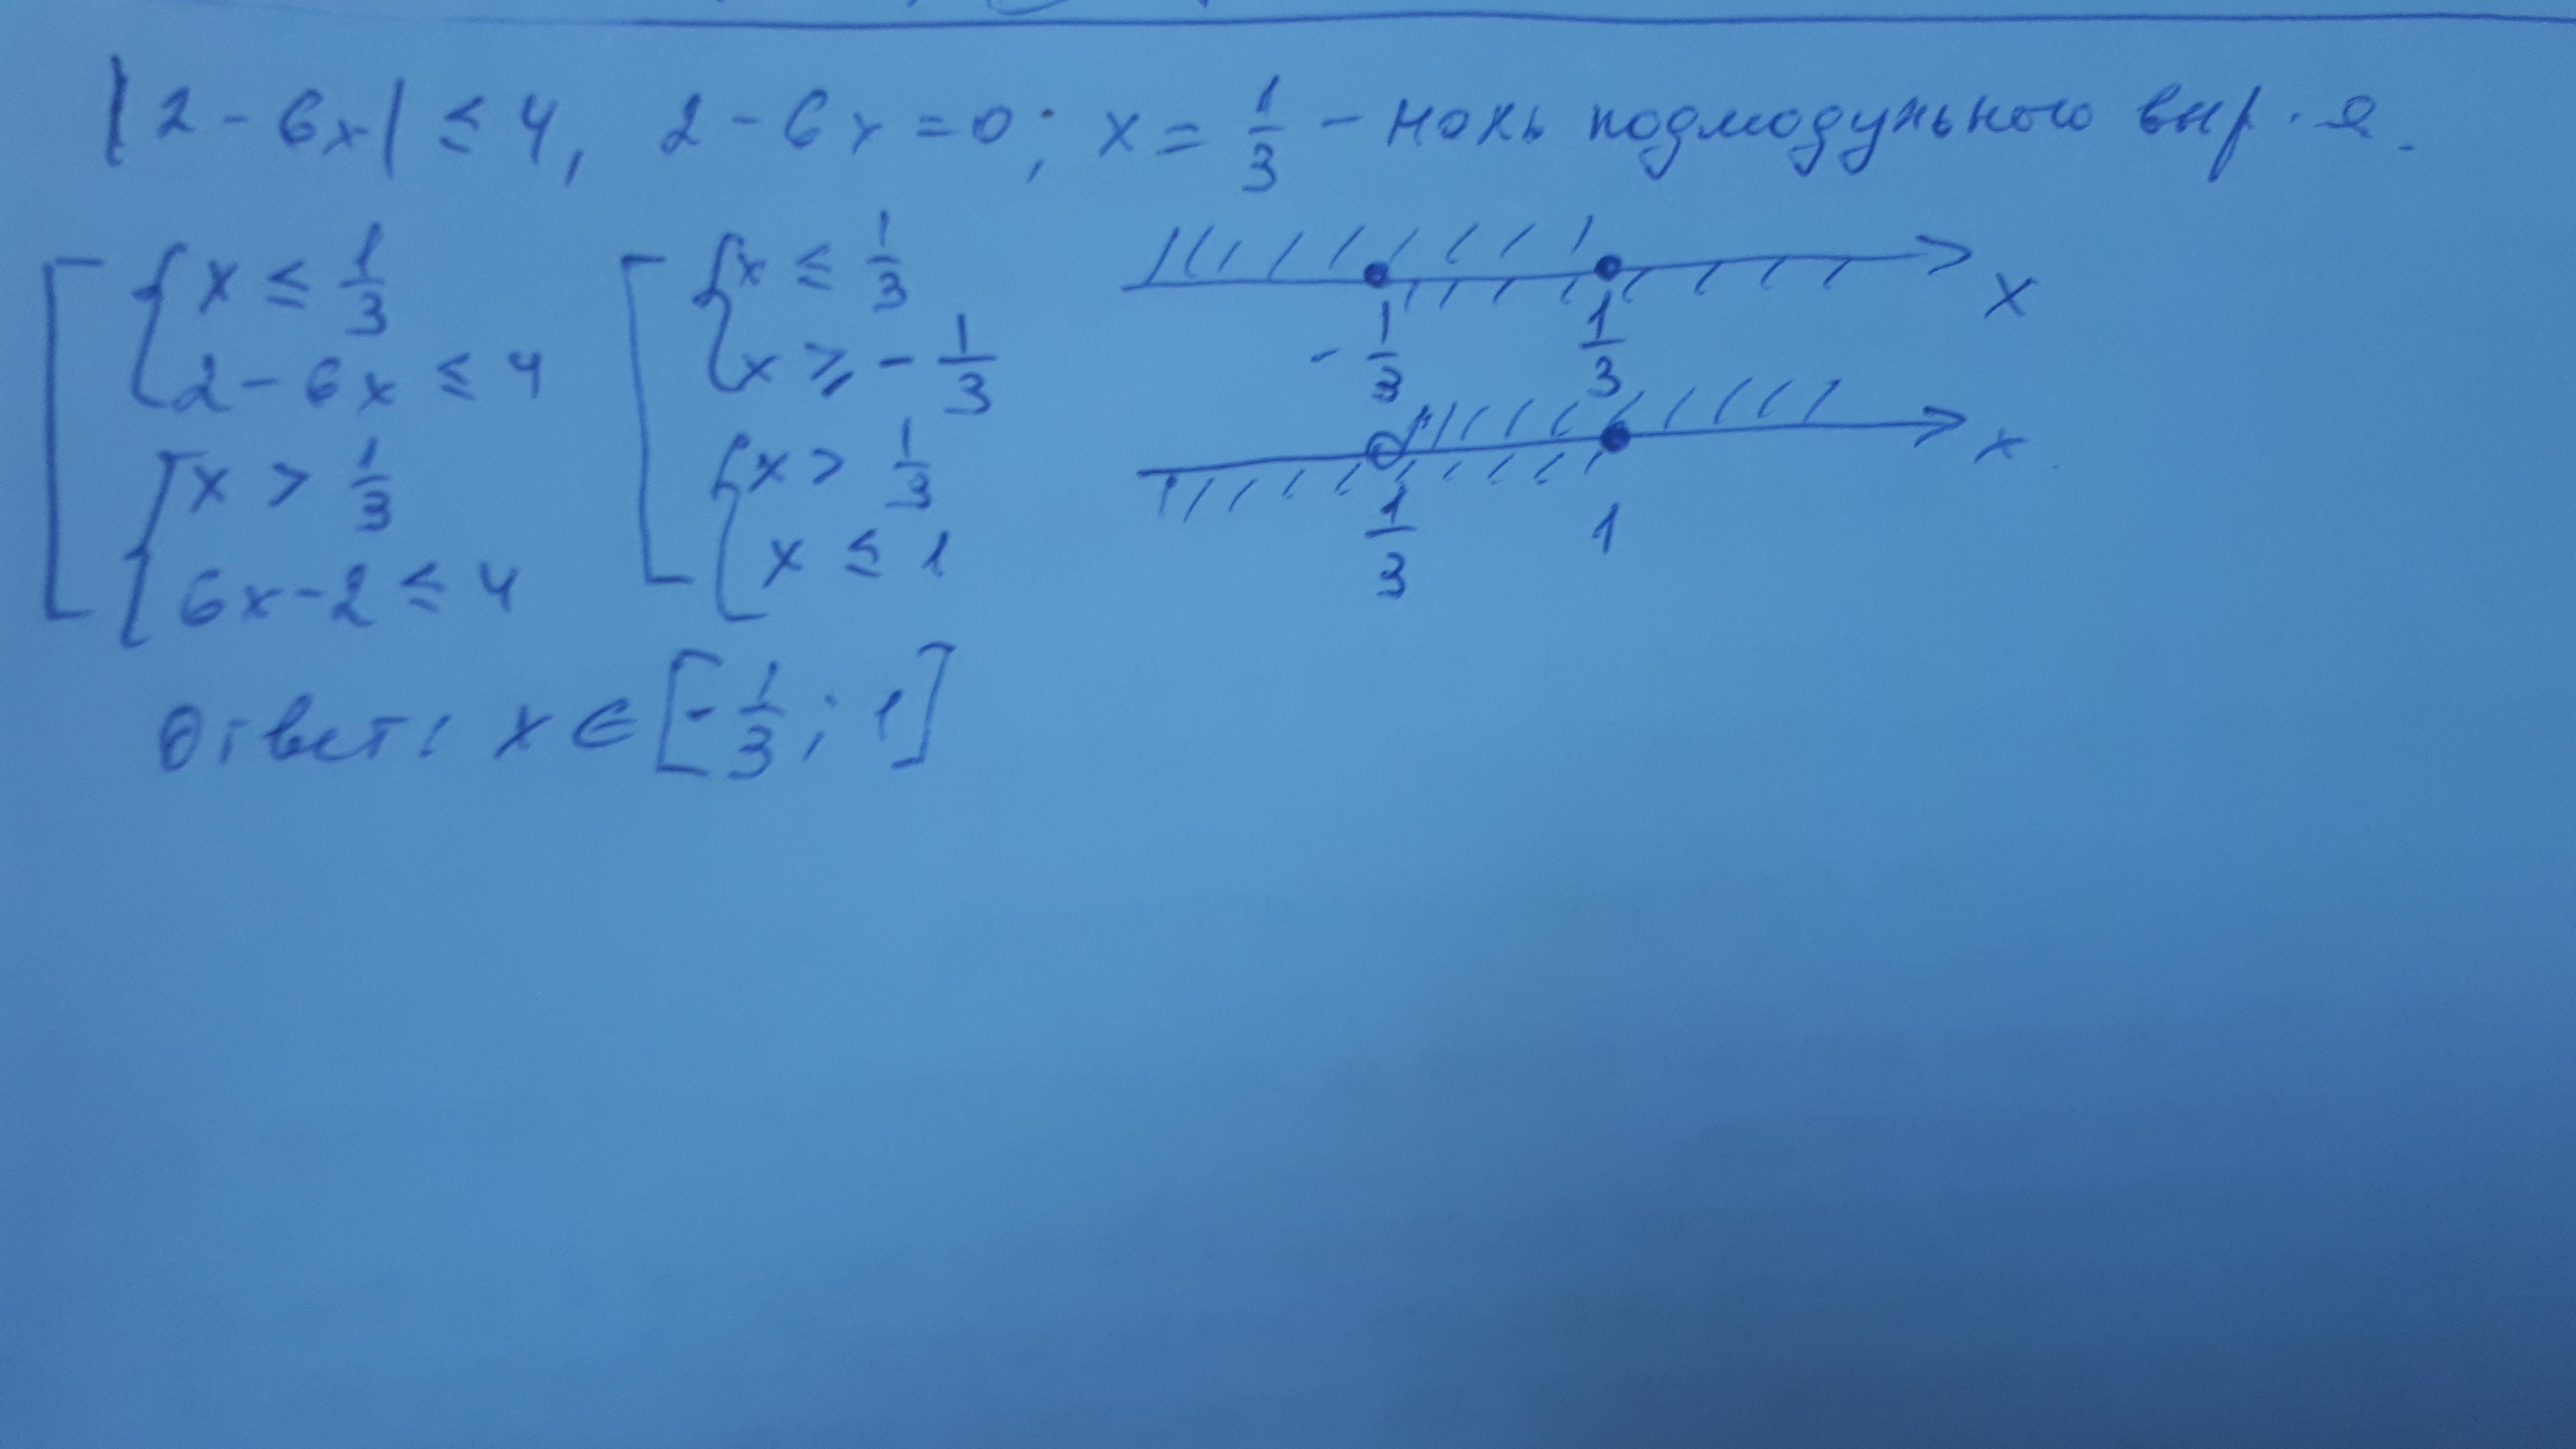 |2 - 6x| ≤ 4, 2 - 6x = 0; x = 1/3 - ноль подмодульного выр-я.
x ≤ 1/3
2 - 6x ≤ 4
x > 1/3
6x - 2 ≤ 4
x ≤ 1/3
x ≥ - 1/3
x > 1/3
x ≤ 1
x
- 1/3 1/3
x
1/3 1
Ответ: x ∈ [- 1/3; 1]